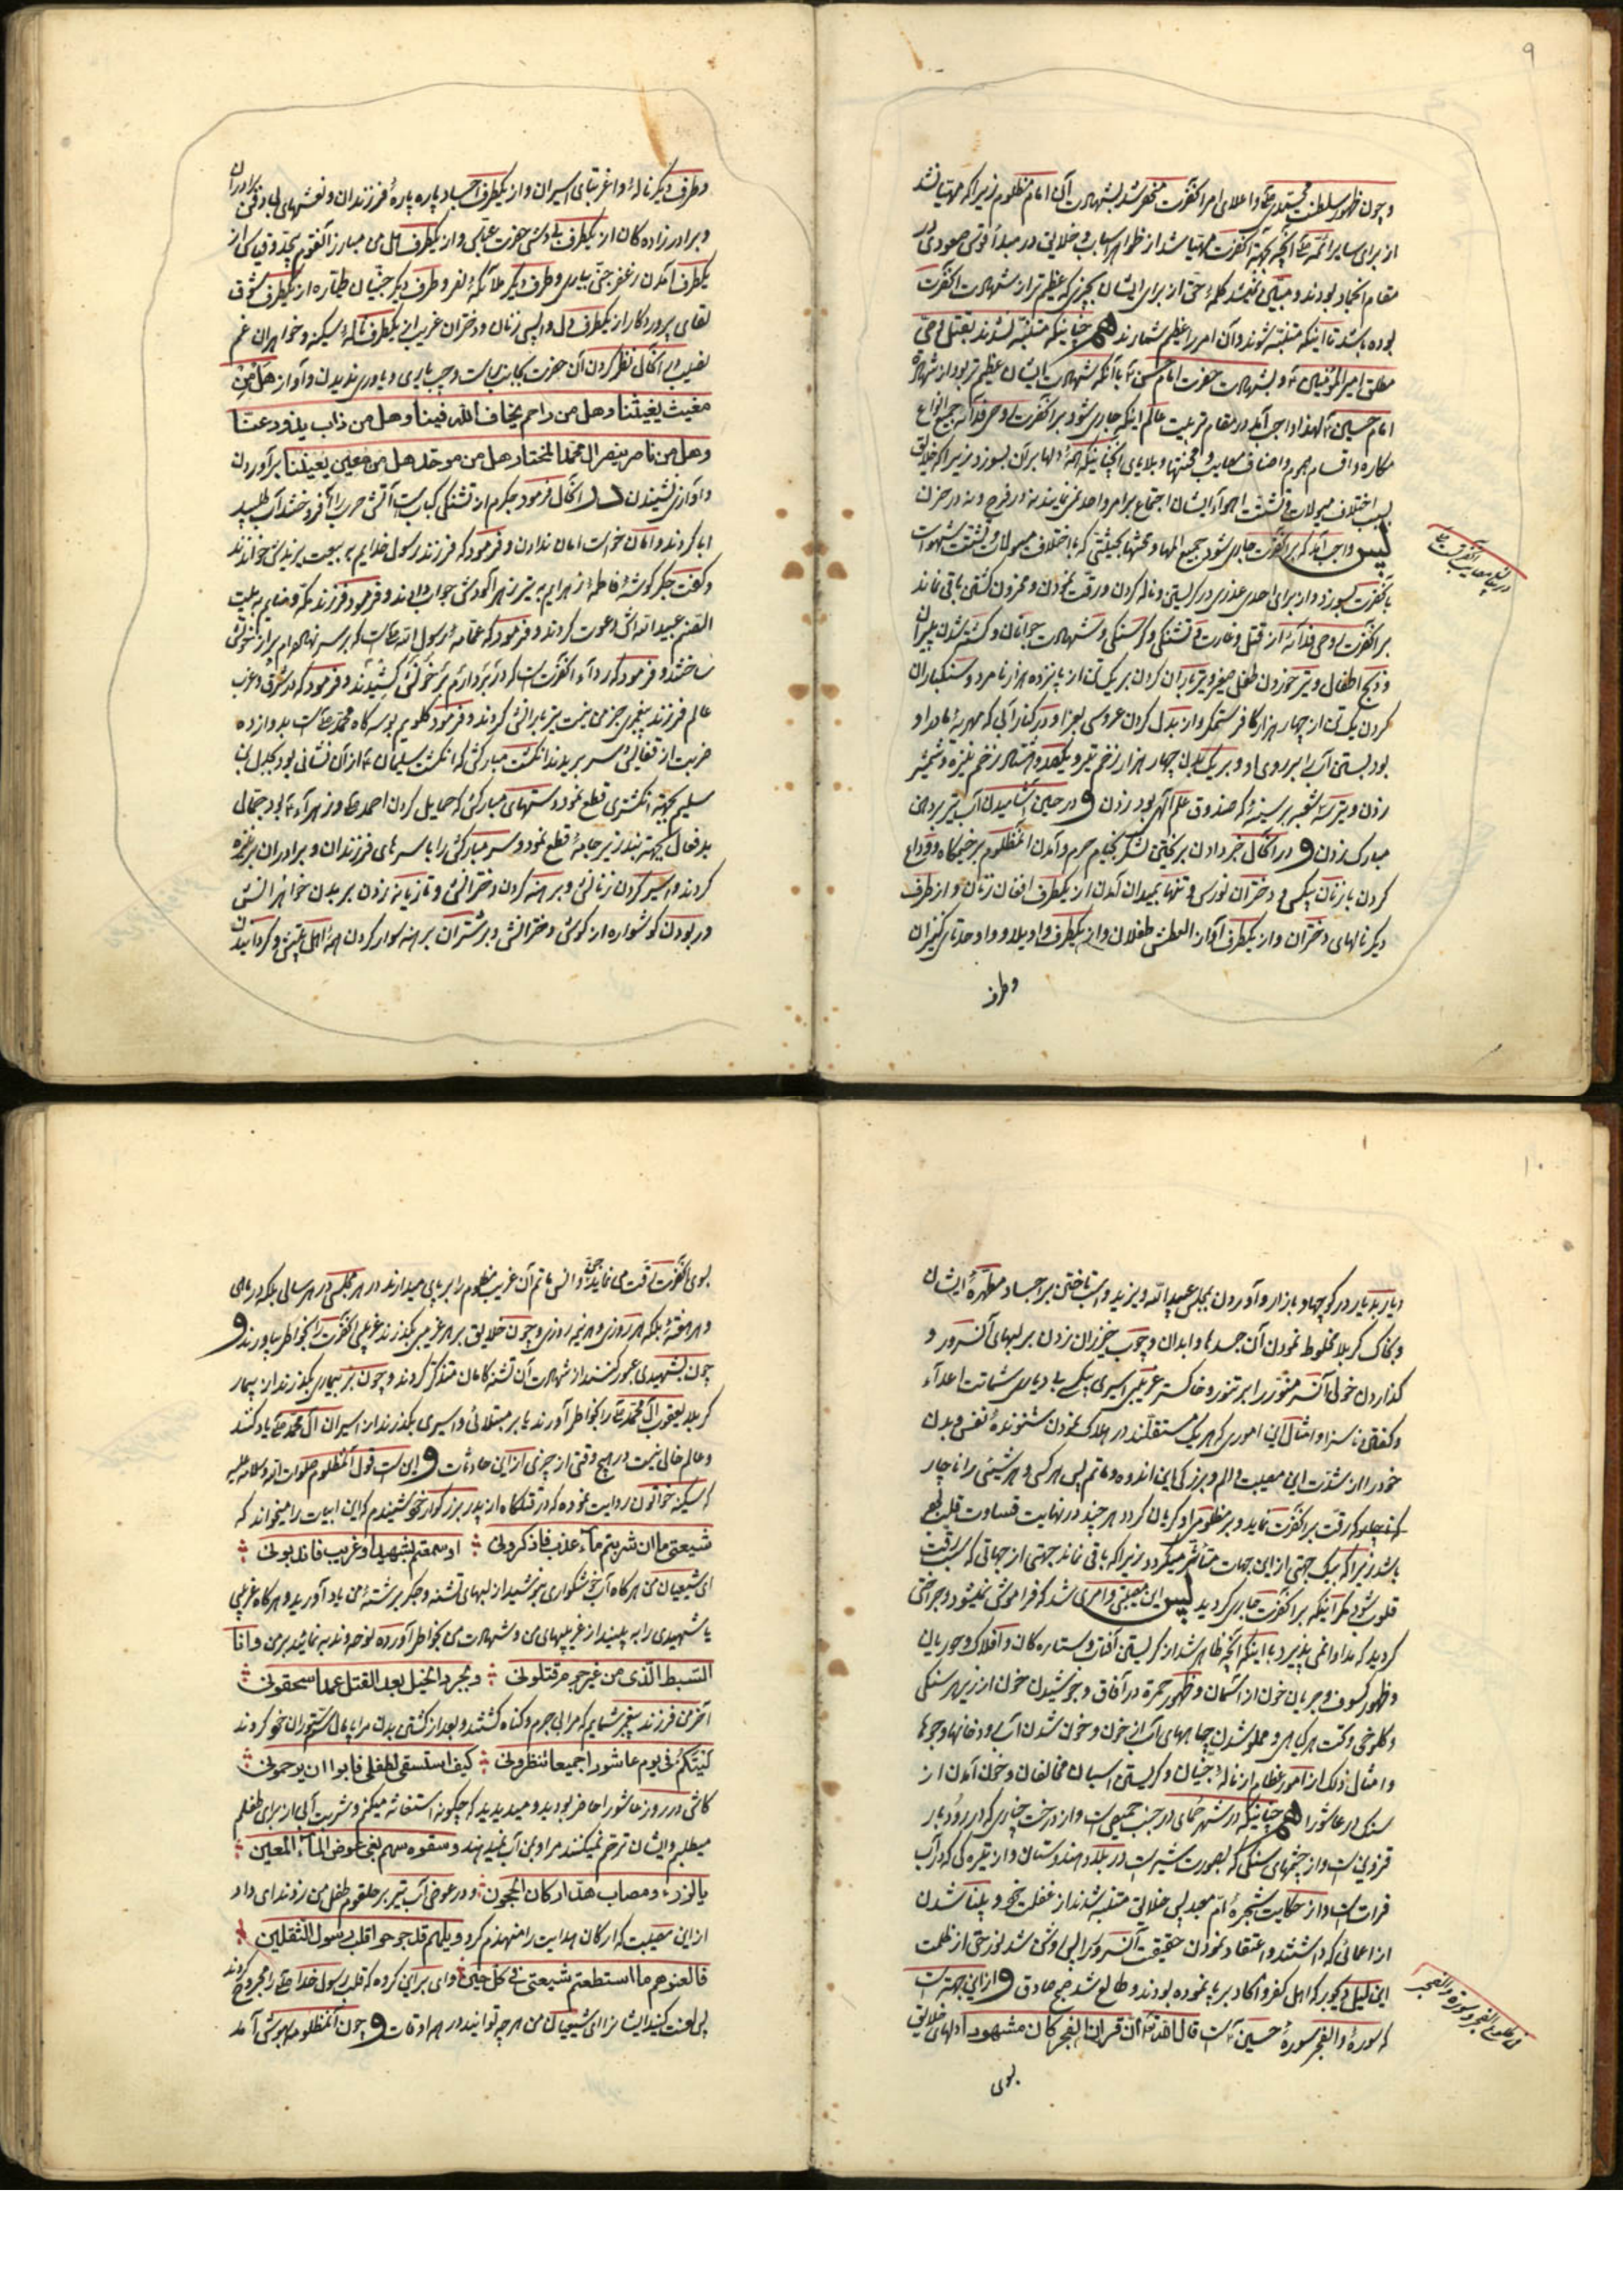 ۹
و چون ظهور سلطنت محمّدیه و اعلای امر آنحضرت منحصر شد بشهادت آن امام مظلوم زیرا که مهیّا نشد
از برای سایر ائمّه آنچه بجهة آنحضرت مهیّا شد از ظواهر اسباب و خلایق در مبدأ قوس صعودی در
مقام انجماد بودند و متنبّه نمیشد کلمهٔ حق از برای ایشان بچیزی که عظیم‌تر از شهادت آنحضرت
بوده باشد تا اینکه متنبّه شوند و آن امر را عظیم شمارند همچنانکه متنبّه نشدند بقتل وصیّ
مطلق امیرالمؤمنین و بشهادت حضرت امام حسن با آنکه شهادت ایشان عظیم‌تر بود از شهادة
امام حسین لهذا واجب آمد در مقام تربیت عالم اینکه جاری شود بر آنحضرت روحی فداه جمیع انواع
مکاره و اقسام هموم و اصناف مصایب و محنتها و بلاها بحیثیتی که همهٔ دلها بر آن بسوزد زیرا که خلایق
بسبب اختلاف میولات و تشتّت اهوآء ایشان اجتماع بر امر واحد نمی‌نمایند نه در فرح و نه در حزن
پس واجب آمد که بر آنحضرت جاری شود جمیع المها و محنتها بحیثیتی که با اختلاف میولات و تشتّت شهوات
بآنحضرت بسوزد و از برای احدی عذری در گریستن و ناله کردن و رقّت نمودن و محزون گشتن باقی نماند
بر آنحضرت روحی فداه از قتل و غارت و تشنگی و گرسنگی و شهادت جوانان و کشته شدن پیران
و ذبح اطفال و تیر خوردن طفل صغیر و تیرباران کردن بر یک تن از پانزده هزار نامرد و سنگباران
کردن یک تن از چهار هزار کافر ستمگر و از بدل کردن عروسی بعزا و در کنار آبی که مهریهٔ مادر او
بود بستن آب را بر روی او و بر یک بدن چهار هزار زخم تیر و یکصد و هشتاد زخم نیزه و شمشیر
زدن و تیر سه شعبه بر سینهٔ که صندوق علم الهی بود زدن و در حین آشامیدن آب تیر بر دهن
مبارک زدن و در آنحال خبر دادن بریختن لشکر بخیام حرم و آمدن آنمظلوم بر خیمگاه و وداع
کردن با زنان بیکس و دختران نورس و تنها بمیدان آمدن از یکطرف افغان زنان و از طرف
دیگر نالهای دختران و از یکطرف آواز العطش طفلان و از یکطرف واویلا و واوحدتای کنیزان
و طرف
در بیان مصایب آنحضرت
و طرف دیگر نالهٔ وا غربتای اسیران و از یکطرف اجساد پاره پارهٔ فرزندان و نعشهای برادران
و برادرزاده‌گان از یکطرف بی‌دستی حضرت عبّاس و از یکطرف هل من مبارز آنقوم بیحد و قیاس از
یکطرف آمدن زعفر جنّی بیاری و طرف دیگر ملائکهٔ نصر و طرف دیگر جنّیان طیّاره از یکطرف شوق
لقای پروردگار از یکطرف دلواپسی زنان و دختران غریب از یکطرف نالهٔ سکینه و خواهران غم
نصیب در آنحال نظر کردن آن حضرت بجانب راست و چپ یاری و یاوری ندیدن و آواز هل من
مغیث یغیثنا و هل من راحم یخاف الله فینا و هل من ذاب یذود عنّا
و هل من ناصر ینصر آل محمّد المختار و هل من موحّد هل من معین یعیننا برآوردن
و آوازی نشنیدن در آنحال فرمود جگرم از تشنگی کبابست آتش حرب را افروختند آب طلبید
ابا کردند و امان خواست امان ندادند و فرمود که فرزند رسول خدایم به بیعت یزیدش خواندند
و گفت جگرگوشهٔ فاطمهٔ زهرایم به تیر زهرآلودش جواب دادند و فرمود فرزند مکّه و منایم به بیعت
عبیدالله‌اش دعوت کردند و فرمود که عمّامهٔ رسول الله است که بر سر نهاده‌ام سر از تنش
ساختند و فرمود که رداء آنحضرتست که در بر دارم بر خونش کشیدند و فرمود که در شرق و غرب
عالم فرزند پیغمبری جز من نیست تیربارانش کردند و فرمود گلویم بوسه‌گاه محمّد است بدوازده
ضربت از قفایش سر بریدند انگشت مبارکش که انگشت سلیمان از آن نشانی بود بجدل بن
سلیم بجهة انگشتری قطع نمود و دستهای مبارکش که حمایل کردن احمد و زهرآء بود جمّالی
بدفعال بجهة بند زیر جامه قطع نمود و سر مبارکش را با سرهای فرزندان و برادران بر نیزه
کردند و اسیر کردن زنانش و برهنه کردن دخترانش و تازیانه زدن بر بدن خواهرانش
و ربودن گوشواره از گوش دخترانش و بر شتران برهنه سوار کردن همهٔ اهل بیتش و گردانیدن
۱۰
دیار بدیار در کوچها و بازار و آوردن بمجلس عبیدالله و یزید و اسب تاختن بر اجساد مطهّرهٔ ایشان
و بخاک کربلا مخلوط نمودن آن جسدها و ابدان و چوب خیزران زدن بر لبهای آنسرور و
گذاردن خولی آنسر منوّر را بر تنور و خاکستر غریبی اسیری بیکسی با دیاری شماتت اعدآء
و گفتن ناسزا و امثال این اموری که هر یک مستقلّند در هلاک نمودن شنونده نفس و بدن
خود را از شدّت این مصیبت و الم و بزرگی این اندوه و ماتم پس هر کس و هر شیئی را ناچار
که رقّت بر آنحضرت نماید و بر مظلومی او گریان گردد هر چند در نهایت قساوت قلب
باشد زیرا که بیک جهتی از این جهات متأثّر میگردد زیرا که باقی نماند جهتی از جهاتی که سبب رقّت
قلوب شود مگر اینکه بر آنحضرت جاری گردید پس این مصیبتی و امری شد که فراموش نمیشود و جراحتی
گردید که مداوا نمی‌پذیرد با اینکه آنچه ظاهر شد از گریستن آفتاب و ستاره‌گان و افلاک و حوریان
و ظهور کسوف و جریان خون از آسمان و ظهور حمرة در آفاق و جوشیدن خون از زیر هر سنگی
و کلوخی و تحت هر گیاهی و مملو شدن چاههای آب از خون و خون شدن آب رودخانها و جوها
و امثال ذلک از امور عظام از نالهٔ جنّیان و گریستن اسبان مخالفان و خون آمدن از
سنگ در عاشورا همچنانکه در شهر حمای در جنب حمیص است و از درخت چناری که در رودبار
قزوین است و از چشمهای سنگی که بصورت شیر است در بلاد هندوستان و از تیره‌گی که در آب
فرات است و از حکایت شجرهٔ امّ معبد پس خلایق متنبّه شدند از غفلت خود و بینا شدن
از اعمائی که داشتند و اعتقاد نمودن حقیقت آنسرور را پس روشن شد نور حق از ظلمت
این لیل دیجور که اهل کفر و الحاد برپا نموده بودند و طالع شد صبح صادق و از این جهة است
که سورهٔ والفجر سورهٔ حسین است قال الله تعالی انّ قرآن الفجر کان مشهوداً دلهای خلایق
بسوی
در طلوع الفجر و سورة والفجر
بسوی آنحضرت رقّت می‌نماید جن و انس ماتم آن غریب مظلوم را برپای میدارند در هر مجلسی در هر سالی بلکه در ماهی
و هر هفتهٔ بلکه هر روزی و هر نیم روزی و چون خلایق بر هر غریبی بگذرند غریبی آنحضرت را بخاطر بیاورند و
چون بشهیدی عبور کنند از شهادت آن تشنه کامان متذکّر گردند و چون بر بیماری بگذرند از بیمار
کربلا یعقوب آل محمّد را بخاطر آورند یا بر مبتلائی و اسیری بگذرند از اسیران آل محمّد یاد کنند
و عالم خالی نیست در هیچ وقتی از چیزی از این حادثات و این است قول آنمظلوم صلوات الله و سلامه علیه
که سکینه خواتون روایت نموده که در قتلگاه از پدر بزرگوار خود شنیدم که این ابیات را میخواند که
شیعتی ما ان شربتم مآء عذب فاذکرونی ؞ او سمعتم بشهید او غریب فاندبونی ؞
ای شیعیان من هر گاه آب خوشگواری بنوشید از لبهای تشنه و جگر برشتهٔ من یاد آورید و هر گاه غریبی
یا شهیدی را به بینید از غریبیهای من و شهادت من بخاطر آورده نوحه و ندبه نمائید بر من و انا
السّبط الّذی من غیر جرم قتلونی ؞ و بجرد الخیل بعد القتل عمداً سحقونی ؞
آخر من فرزند پیغمبر شمایم که مرا بی جرم و گناه کشتند و بعد از کشتن بدن مرا پامال ستوران خود کردند
لیتکم فی یوم عاشورا جمیعاً تنظرونی ؞ کیف استسقی لطفلی فابوا ان یرحمونی ؞
کاش در روز عاشورا حاضر بودید و میدیدید که چگونه استغاثه میکنم و شربت آبی از برای طفلم
میطلبم و ایشان ترحّم نمیکنند مرا و بمن آب نمیدهند و سقوه سهم بغی عوض المآء المعین ؞
یا لرزء و مصاب هدّ ارکان الحجون ؞ و در عوض آب تیر بر حلقوم طفل من زدند ای داد
از این مصیبت که ارکان هدایت را منهدم کرد ویلهم قد جرحوا قلب رسول الثقلین ؞
فالعنوهم ما استطعتم شیعتی فی کلّ حین ؞ وای بر این گروه که قلب رسول خدا را مجروح کردند
پس لعنت کنید ایشانرا ای شیعیان من هر چه توانید در همه اوقات و چون آنمظلومه بهوش آمد